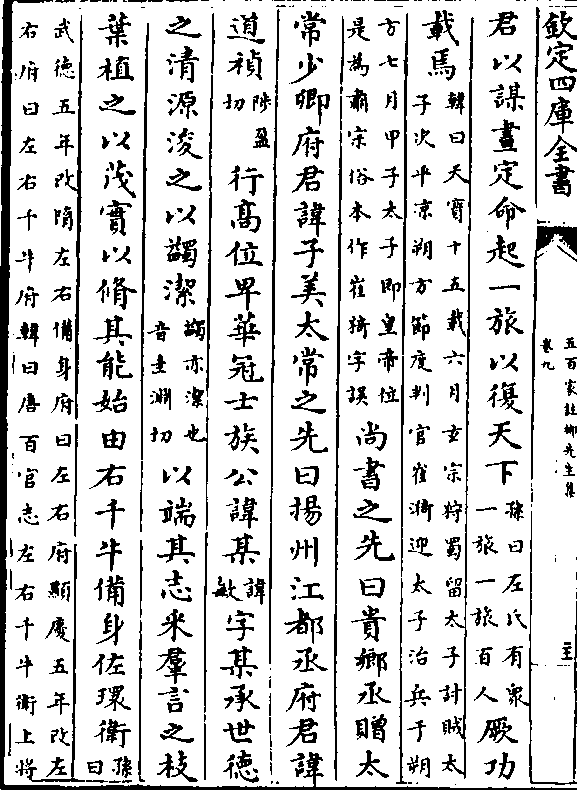 欽定四庫全書
五百家註柳先生集
卷九
君以謀畫定命起一旅以復天下孫曰左氏有衆一旅一旅百人厥功
載焉韓曰天寳十五載六月玄宗狩蜀留太子討賊太子次平凉朔方節度判官崔漪迎太子治兵于朔
方七月甲子太子即皇帝位是為肅宗俗本作崔猗字誤尚書之先曰貴鄉丞贈太
常少卿府君諱子美太常之先曰揚州江都丞府君諱
道禎陟盈切行髙位卑華冠士族公諱某諱敏字某承世徳
之清源浚之以蠲潔蠲亦潔也音圭淵切以端其志采羣言之枝
葉植之以茂實以脩其能始由右千牛備身佐環衛孫曰
武徳五年改隋左右備身府曰左右府顯慶五年改左右府曰左右千牛府韓曰唐百官志左右千牛衛上將